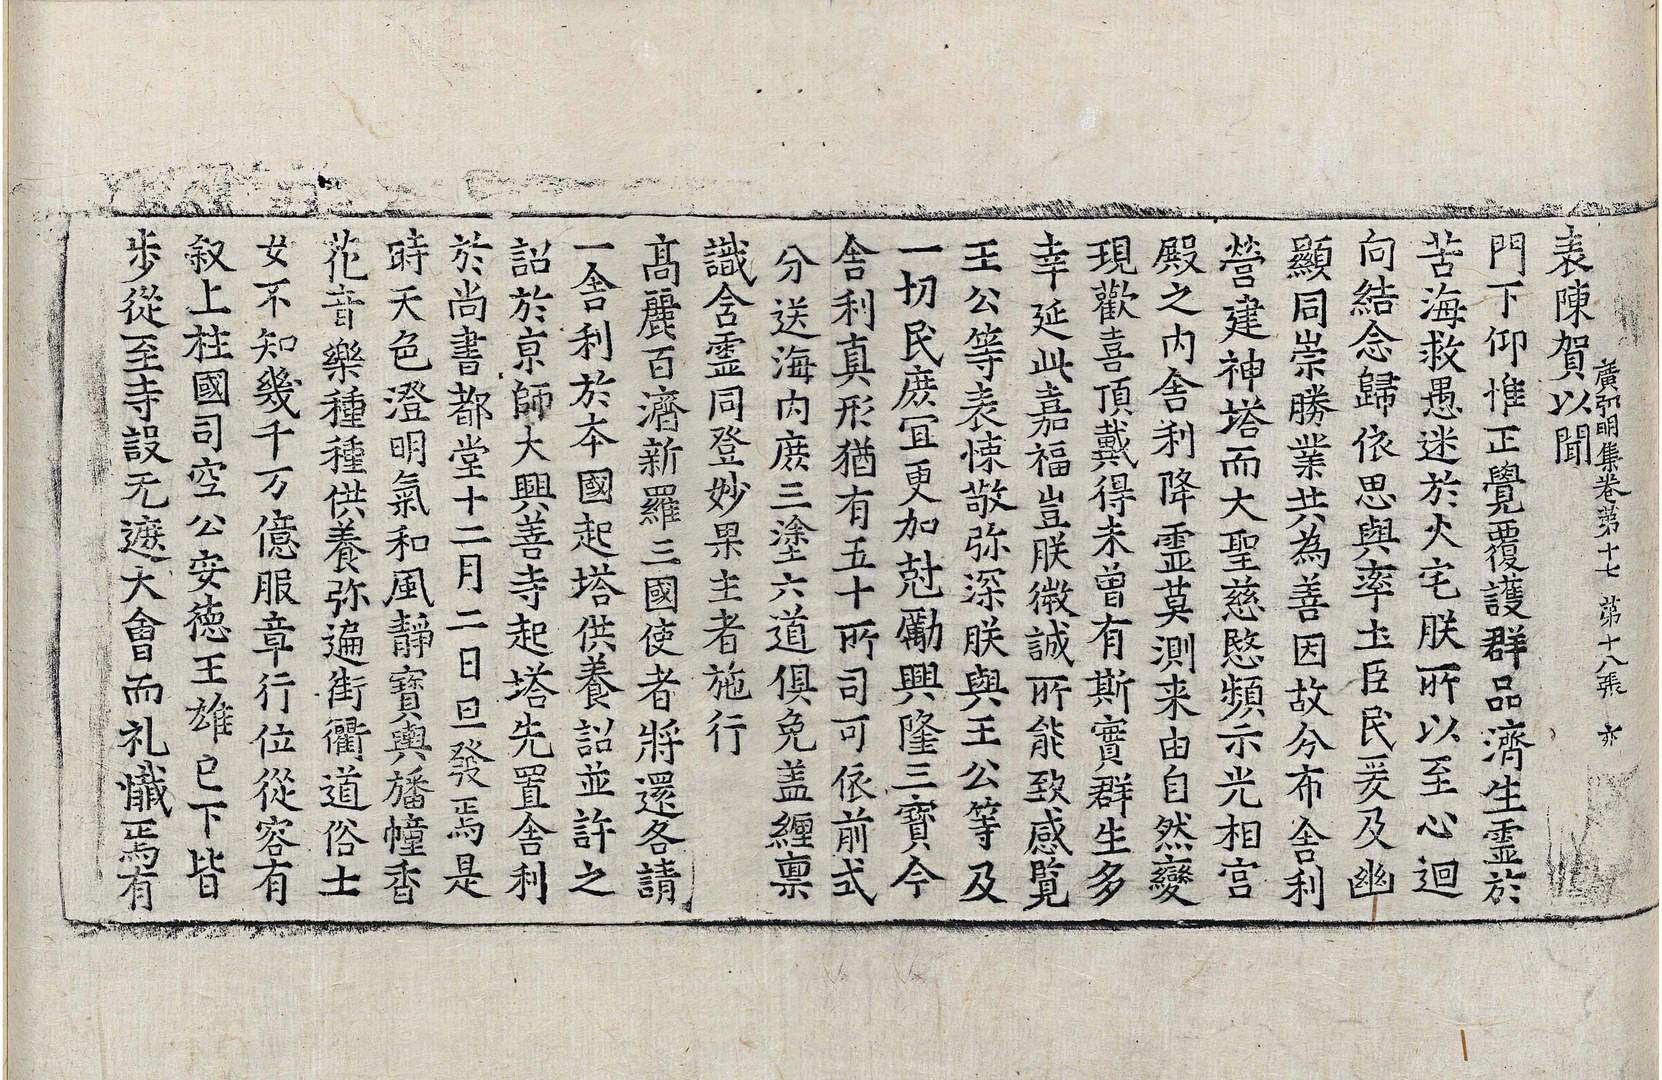 廣弘明集卷第十七 第十八張 亦
表陳賀以聞
門下仰惟正覺覆護群品濟生靈於
苦海救愚迷於火宅朕所以至心迴
向結念歸依思與率土臣民爰及幽
顯同崇勝業共為善因故分布舍利
營建神塔而大聖慈愍頻示光相宮
殿之內舍利降靈莫測来由自然變
現歡喜頂戴得未曾有斯實群生多
幸延此嘉福豈朕微誠所能致感覽
王公等表悚敬弥深朕與王公等及
一切民庶宜更加尅勵興隆三寶今
舍利真形猶有五十所司可依前式
分送海內庶三塗六道俱免盖纏禀
識含靈同登妙果主者施行
髙麗百濟新羅三國使者將還各請
一舍利於本國起塔供養詔並許之
詔於京師大興善寺起塔先置舍利
於尚書都堂十二月二日旦發焉是
時天色澄明氣和風靜寶輿旛幢香
花音樂種種供養弥遍街衢道俗士
女不知幾千万億服章行位從容有
叙上柱國司空公安德王雄已下皆
步從至寺設无遮大會而礼懺焉有